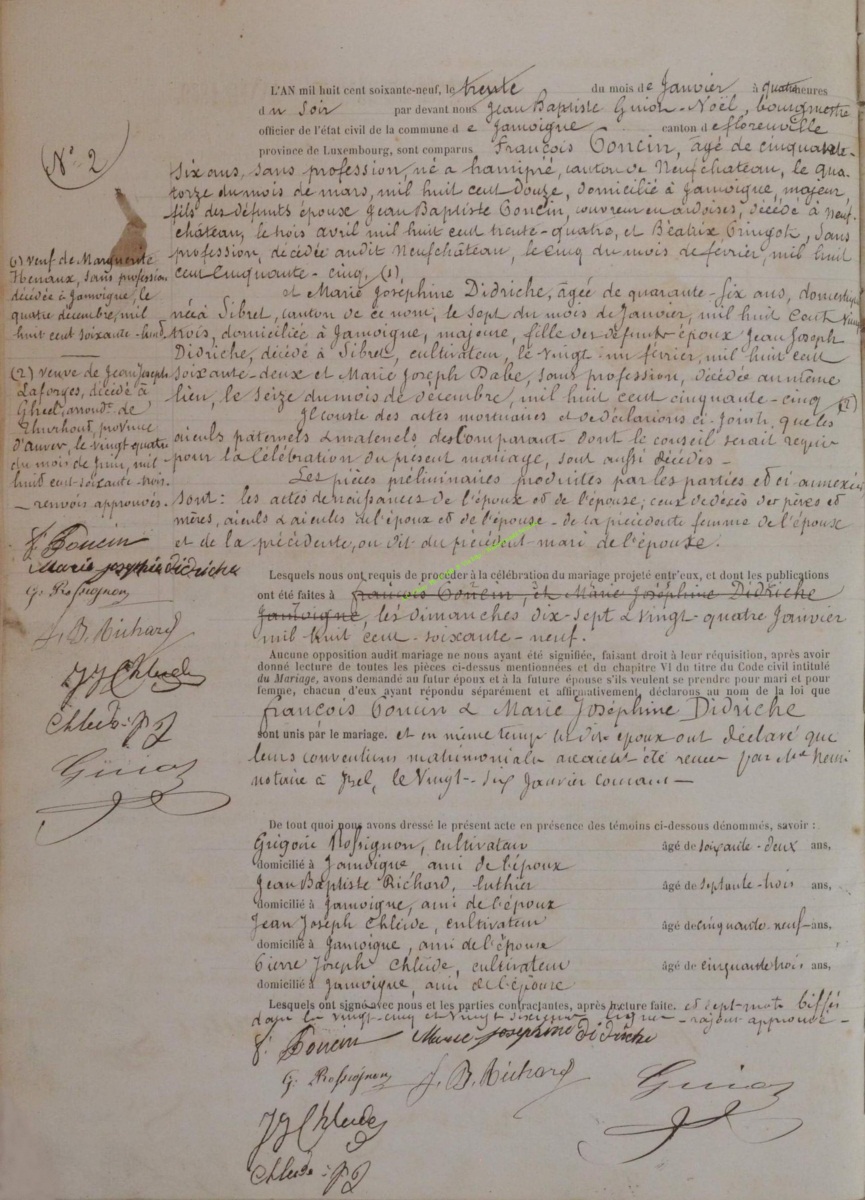 L'AN mil huit cent soixante-neuf, le trente du mois de Janvier à quatre heures
du soir par devant nous Jean Baptiste Guiot-Noël, bourgmestre
officier de l'état civil de la commune de Jamoigne canton de florenville
province de Luxembourg, sont comparus François Poncin, âgé de cinquante-
six ans, sans profession, né a hamipré, canton de Neufchateau, le qua-
torze du mois de mars, mil huit cent douze, domicilié à Jamoigne, majeur,
fils des défunts époux Jean Baptiste Poncin, couvreur en ardoises, décédé à Neuf-
château, le trois avril mil huit cent trente-quatre, et Béatrix Pringot, Sans
profession, décédée audit Neufchâteau, le Cinq du mois de février, mil huit
cent Cinquante-cinq, (1),
et Marie Joséphine Didriche, âgée de quarante-six ans, domestique
née à Sibret, canton de ce nom, le sept du mois de Janvier, mil huit Cent vingt
trois, domiciliée à Jamoigne, majeure, fille des défunts époux Jean Joseph
Didriche, décédé à Sibret, cultivateur, le vingt un février, mil huit cent
soixante-deux et Marie Joseph sans profession, décédée au même
lieu, le seize du mois de décembre, mil huit cent cinquante-cinq (2)
Il conste des actes mortuaires et de déclarions ci-joints, que les
aieuls paternels & maternels des Comparant dont le conseil serait requis
pour la Célébration du présent mariage, sont aussi décédés -
Les pièces préliminaires produites par les parties et ci annexées
sont : les actes de naissances de l'époux et de l'épouse ; ceux de décès des pères et
mères, aieuls & aieules de l'époux et de l'épouse - de la précédente femme de l'époux
et de la précédente, ou dit du précédent mari de l'épouse.
N° 2
(1) veuf de Marguerite
Henaux, sans profession
décédée à Jamoigne, le
quatre décembre, mil
huit cent soixante-huit
(2) veuve de Jean Joseph
Laforges, décédé à
Gheel, arrondt. de
Thurhout, province
d'Anver, le vingt quatre
du mois de Juin, mil
huit cent soixante-trois.
- renvois approuvés.
f. Poncin
Marie josephine didriche
G. Rossignon
J. B. Richard
JJ Chleide
Chleide P J
Guiot
Lesquels nous ont requis de procéder à la célébration du mariage projeté entr'eux, et dont les publications
ont été faites à françois Poncin, et Marie Joséphine Didriche
Jamoigne, les dimanches dix-sept & vingt-quatre Janvier
mil huit cent-soixante-neuf.
Aucune opposition audit mariage ne nous ayant été signifiée, faisant droit à leur réquisition, après avoir
donné lecture de toutes les pièces ci-dessus mentionnées et du chapitre VI du titre du Code civil intitulé
du Mariage, avons demandé au futur époux et à la future épouse s'ils veulent se prendre pour mari et pour
femme, chacun d'eux ayant répondu séparément et affirmativement, déclarons au nom de la loi que
françois Poncin & Marie Joséphine Didriche
sont unis par le mariage. et en même temps lesdits époux ont déclaré que
leurs conventions matrimoniales avaient été reçues par Me
notaire à Izel, le Vingt-Six Janvier courant -
De tout quoi nous avons dressé le présent acte en présence des témoins ci-dessous dénommés, savoir :
Grégoire Rossignon, cultivateur âgé de soixante-deux ans,
domicilié à Jamoigne, ami de l'époux
Jean Baptiste Richard, luthier âgé de septante-trois ans,
domicilié à Jamoigne, ami de l'époux
Jean Joseph Chleide, cultivateur âgé de cinquante neuf ans,
domicilié à Jamoigne, ami de l'épouse
Pierre Joseph Chleide, cultivateur âgé de cinquante trois ans,
domicilié à Jamoigne, ami de l'épouse
Lesquels ont signé avec nous et les parties contractantes, après lecture faite. et sept mots biffés
dans la vingt-cinq et vingt sixième lignes - approuvé -
f. Poncin Marie josephine didriche
G. Rossignon J. B. Richard Guiot
JJ Chleide
Chleide P J